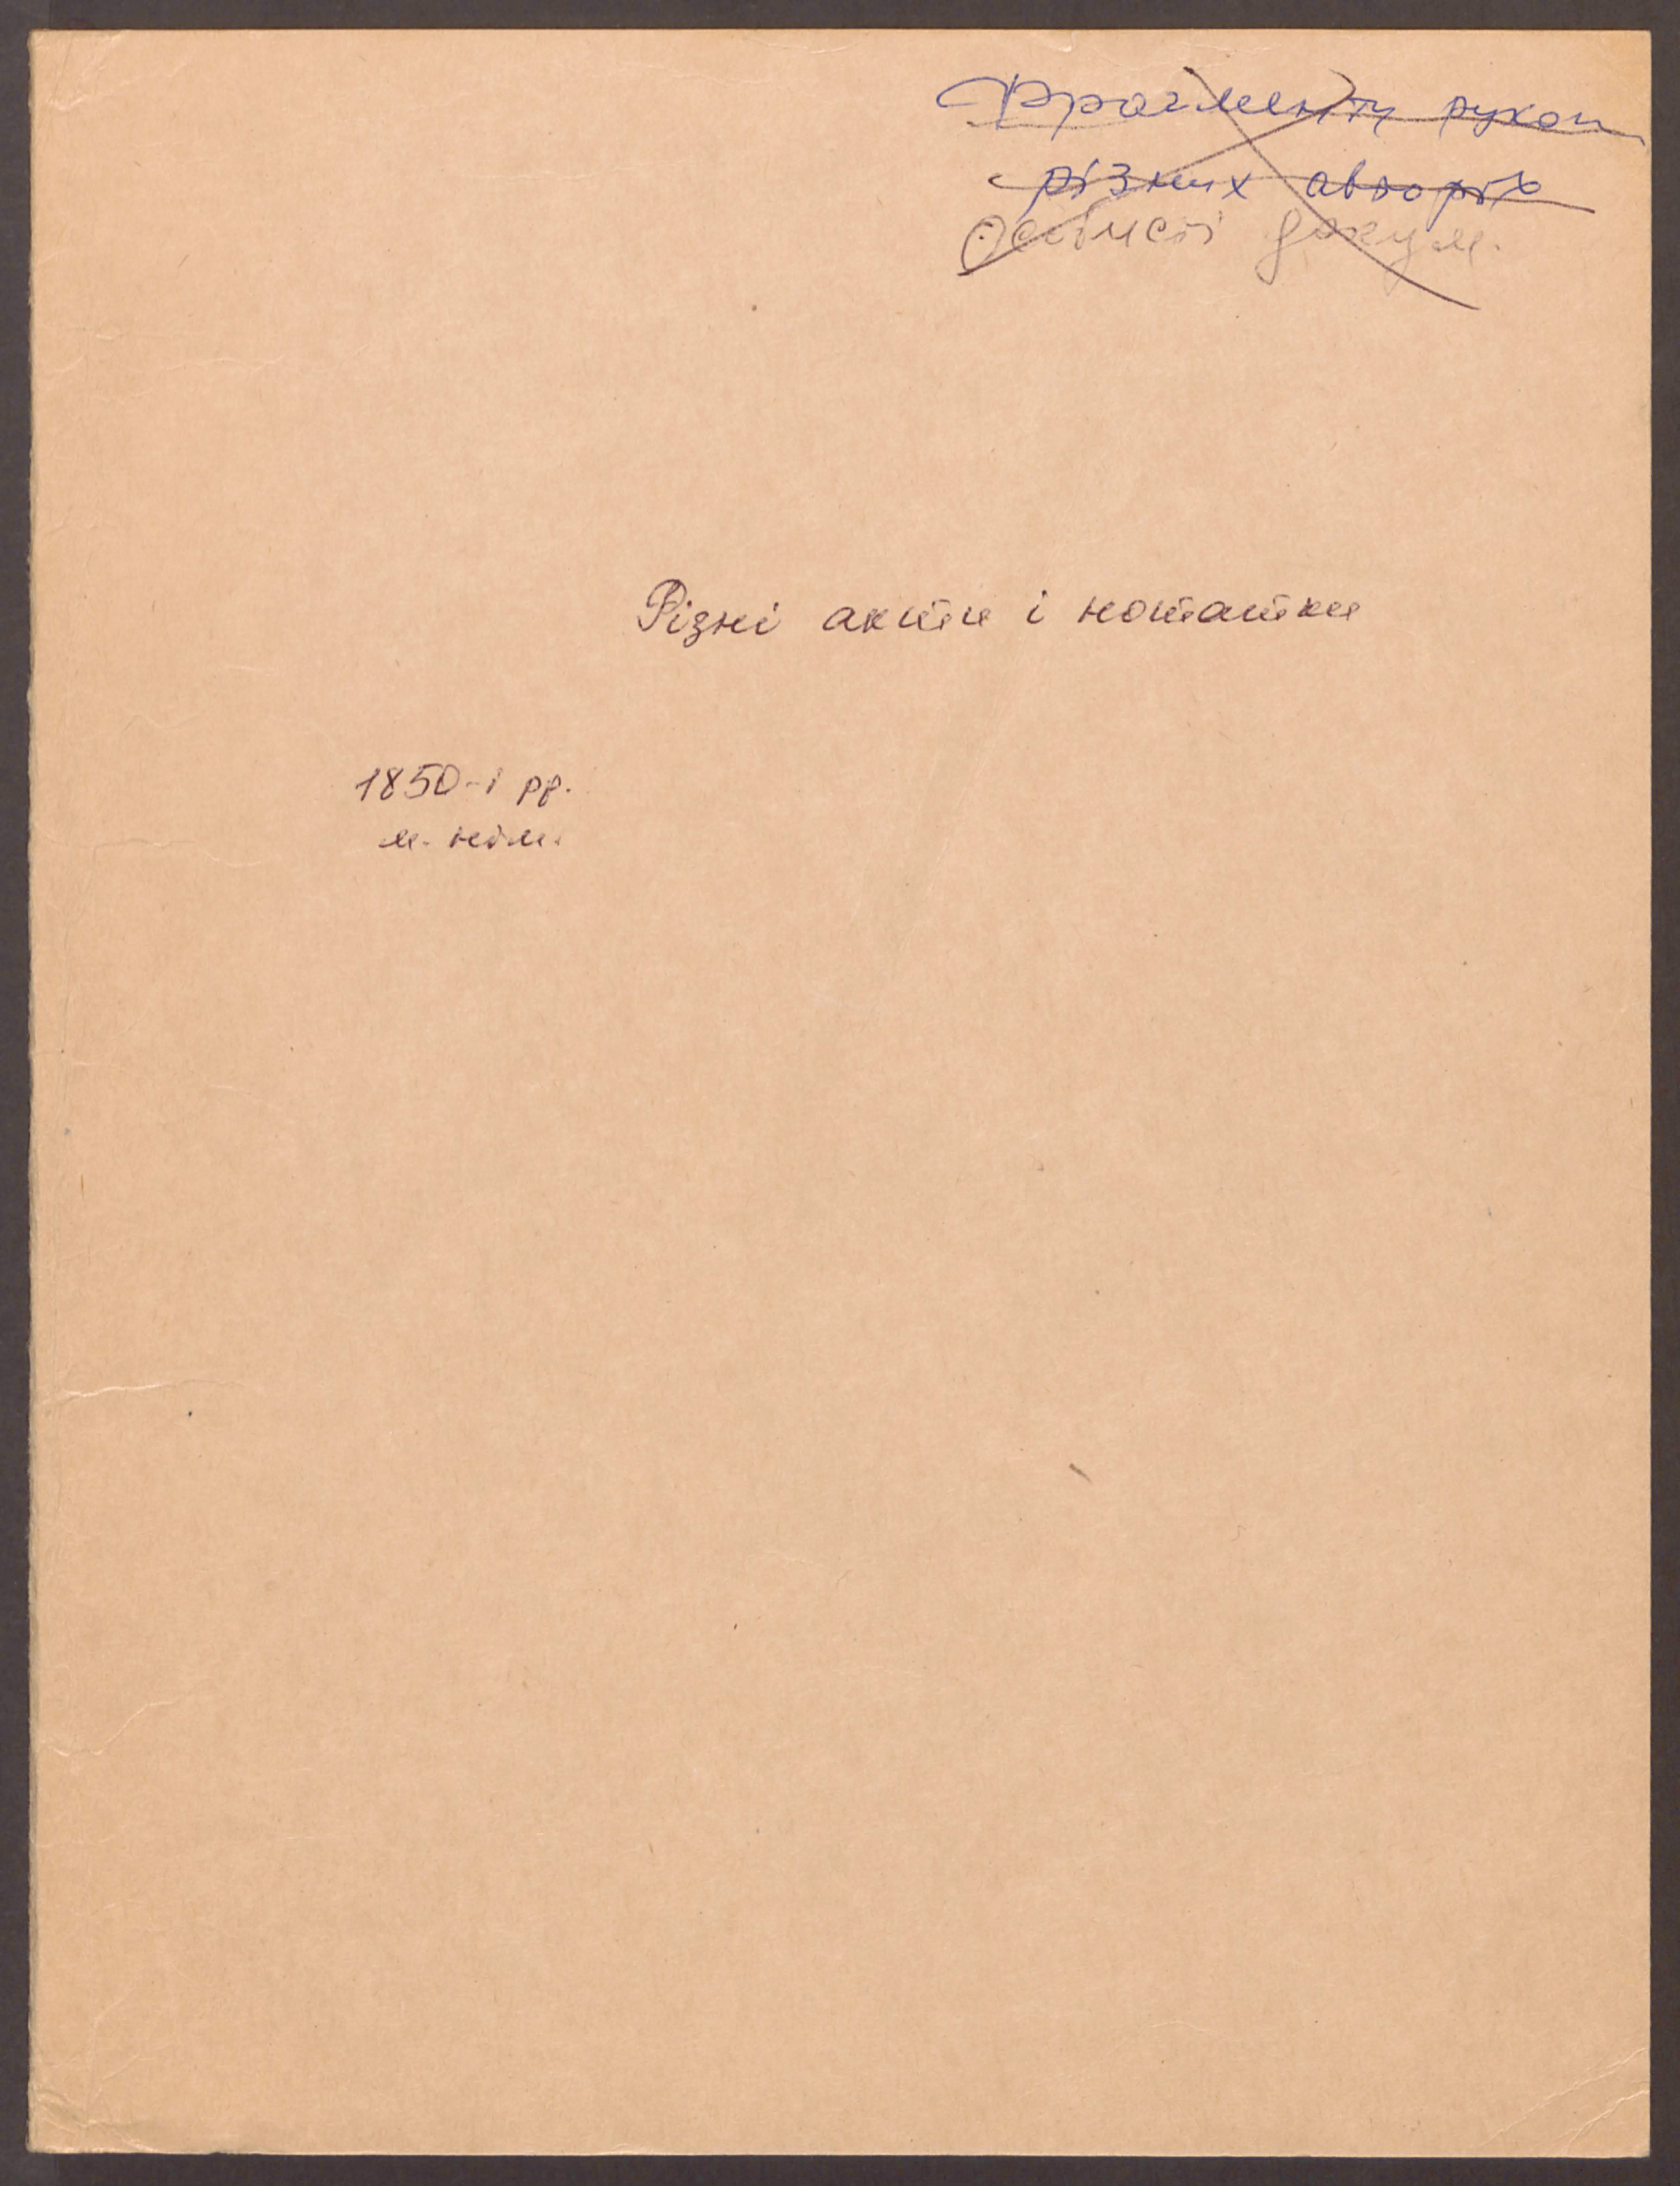 Фрагменти рукоп
різних авторів
Особисті докум.
Різні акти і нотатки
1850-і рр.
м. нім.